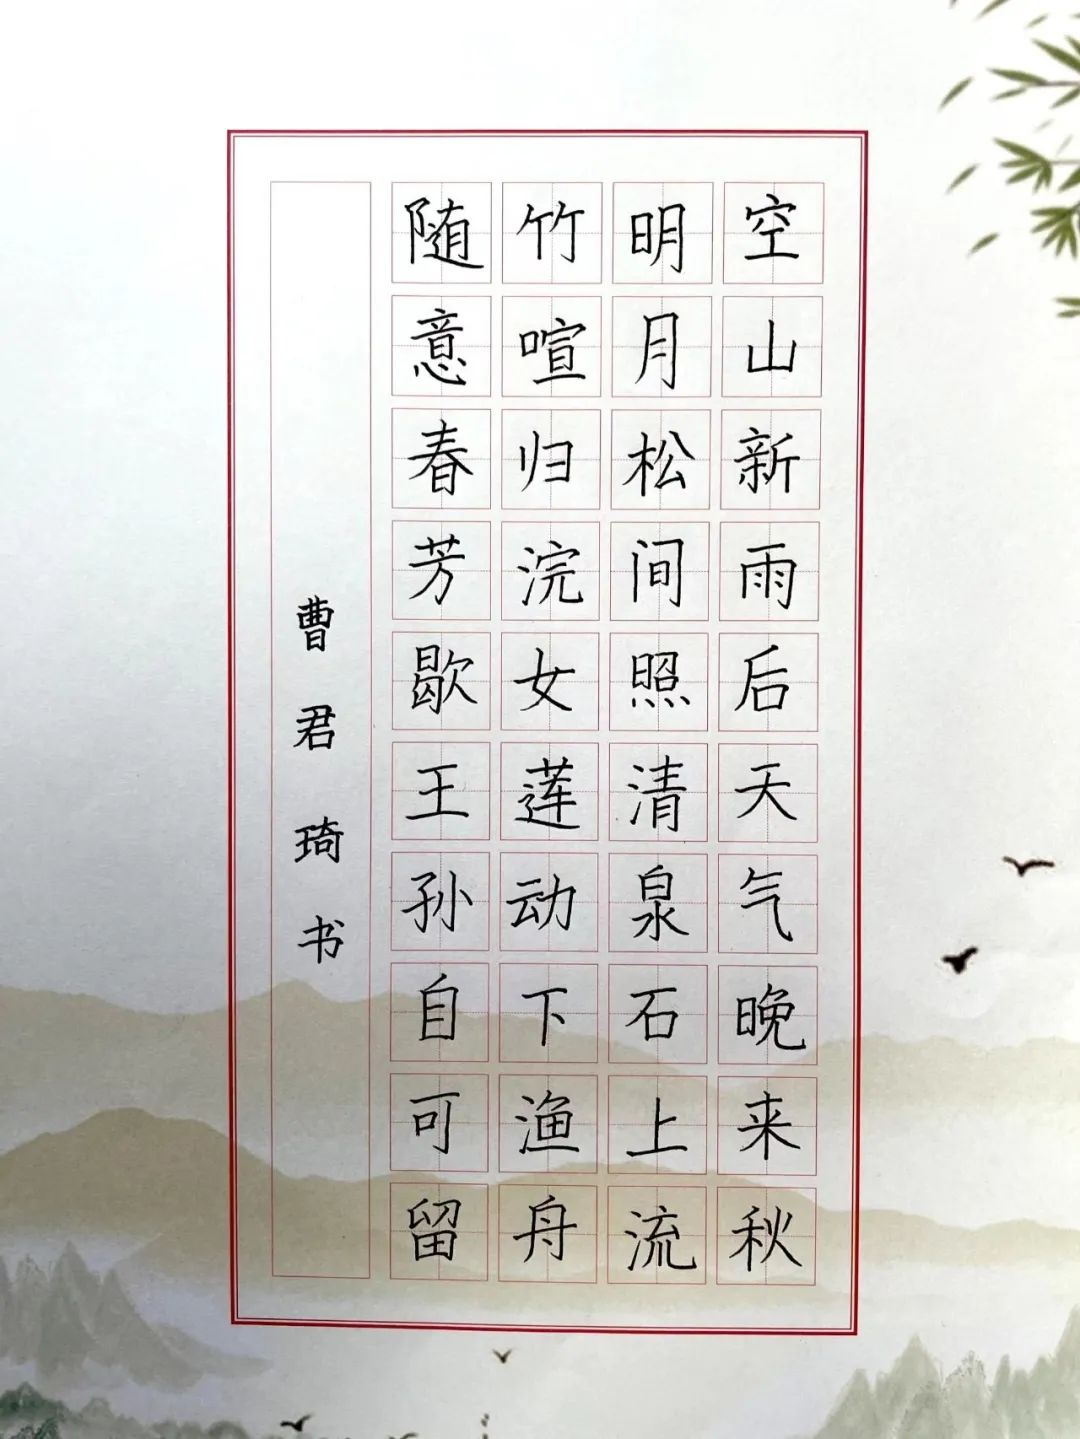 空山新雨后天气晚来秋
明月松间照清泉石上流
竹喧归浣女莲动下渔舟
随意春芳歇王孙自可留
曹君琦书